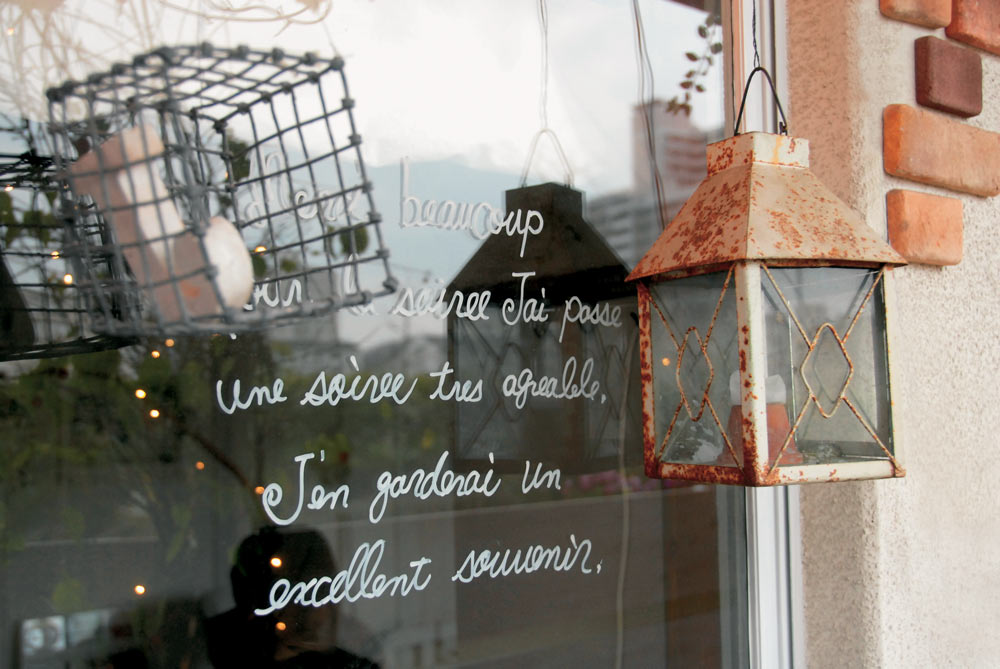 Merci beaucoup
pour la soiree J'ai passe
une soiree tres agreable.
J'en garderai un
excellent souvenir.